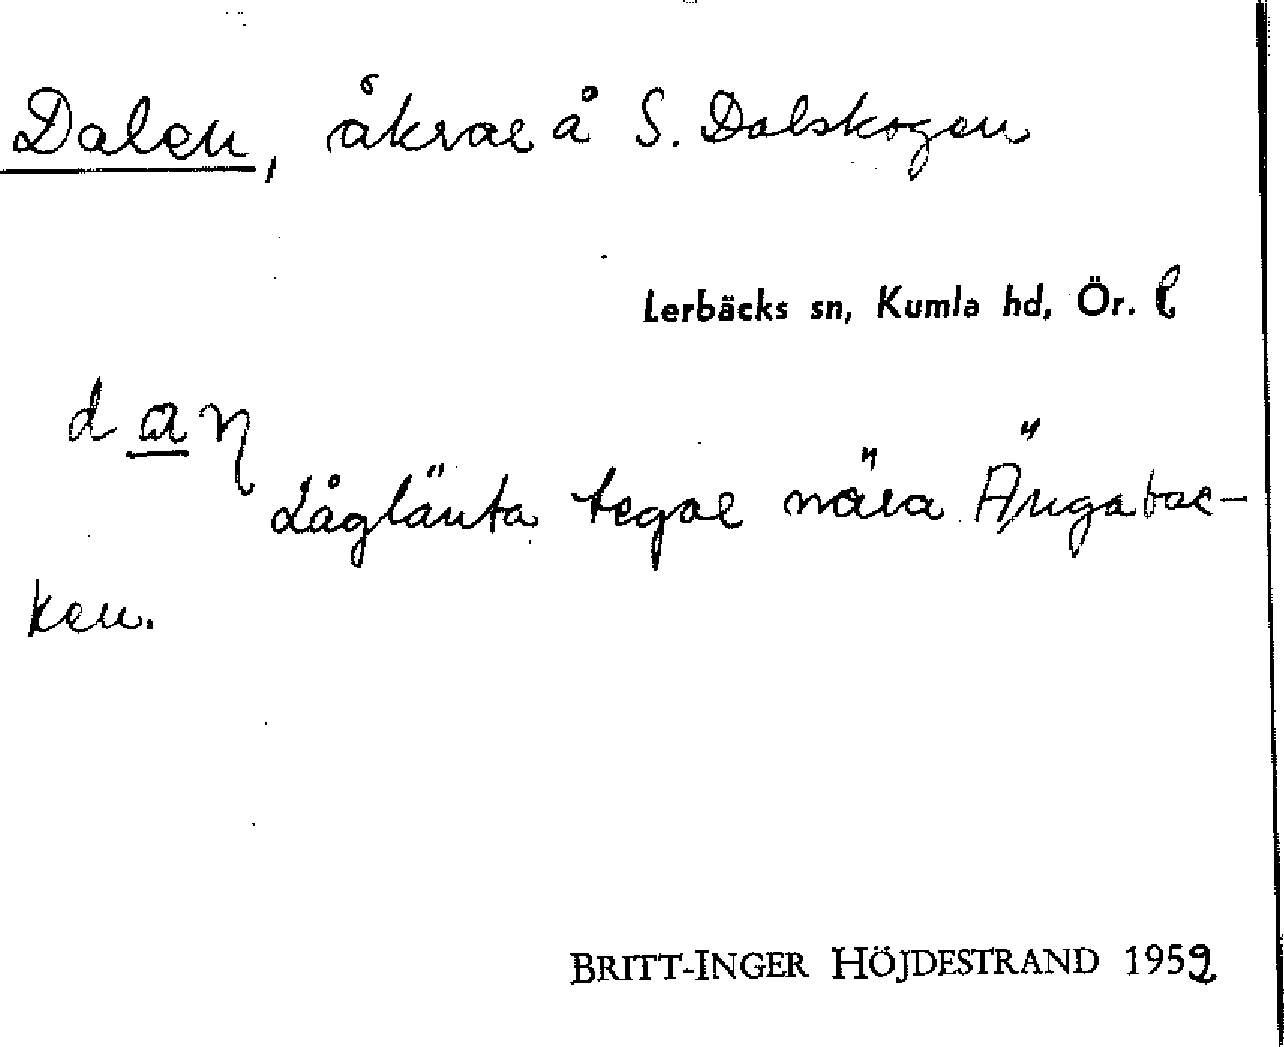 Dalen, åkrar å S. Dalskogen
Lerbäcks sn, Kumla hd, Ör. l
daɳ
Låglänta tegar nära Ängabac-
ken.
BRITT-INGER HÖJDESTRAND 1952